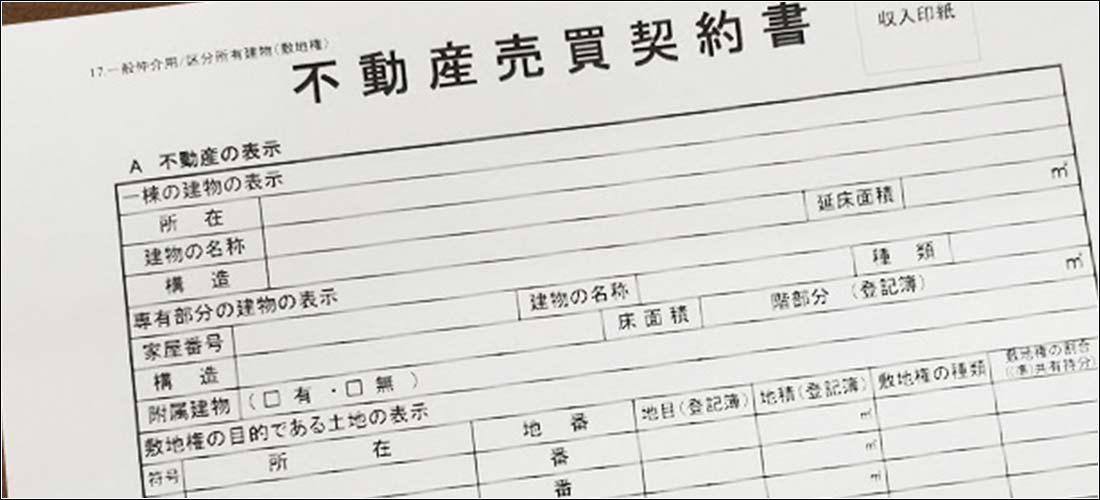 17.一般仲介用/区分所有建物(敷地権)
不動産売買契約書
収入印紙
A 不動産の表示
一棟の建物の表示
所 在
建物の名称 延床面積 ㎡
構 造
専有部分の建物の表示
家屋番号 建物の名称 種 類
構 造 床面積 階部分 (登記簿) ㎡
附属建物 (□ 有 ・□ 無 )
敷地権の目的である土地の表示
符号 所 在 地 番 地目(登記簿) 地積(登記簿) 敷地権の種類 敷地権の割合
((準)共有持分)
番 ㎡
番 ㎡
㎡